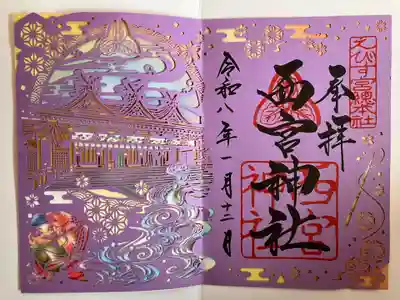 えびす宮總本社
奉拝
西宮神社
西宮
神社
令和八年一月十二日